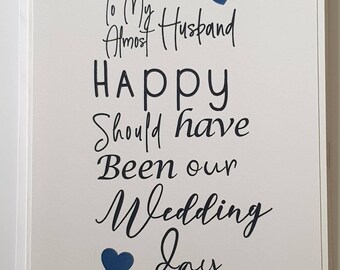 To My
Almost Husband
HAPPY
Should have
Been our
Wedding
day